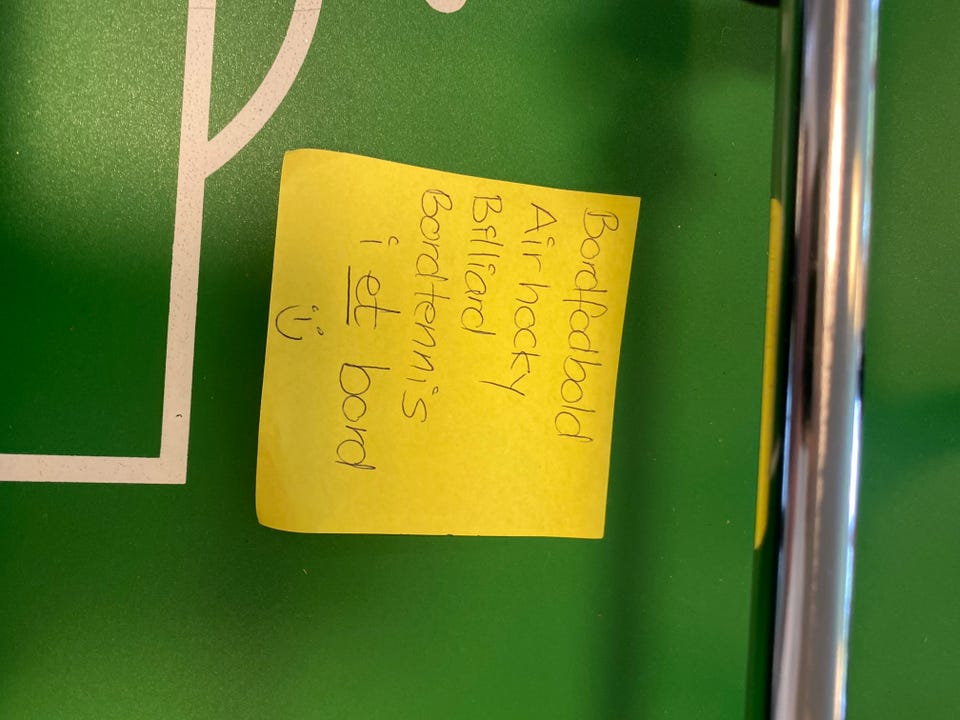 Bordfodbold
Airhocky
Billiard
Bordtennis
i et bord